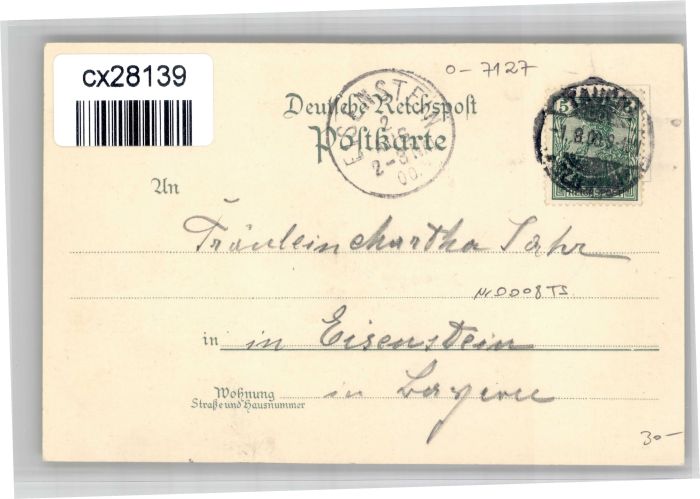 cx28139
0-7127
Deutsche Reichspost
Postkarte
EISENSTEIN
2
2-3
00.
5
An
Fräulein Martha Sahr
in in Eisenstein
Wohnung
Straße und Hausnummer
in Bayern
30-